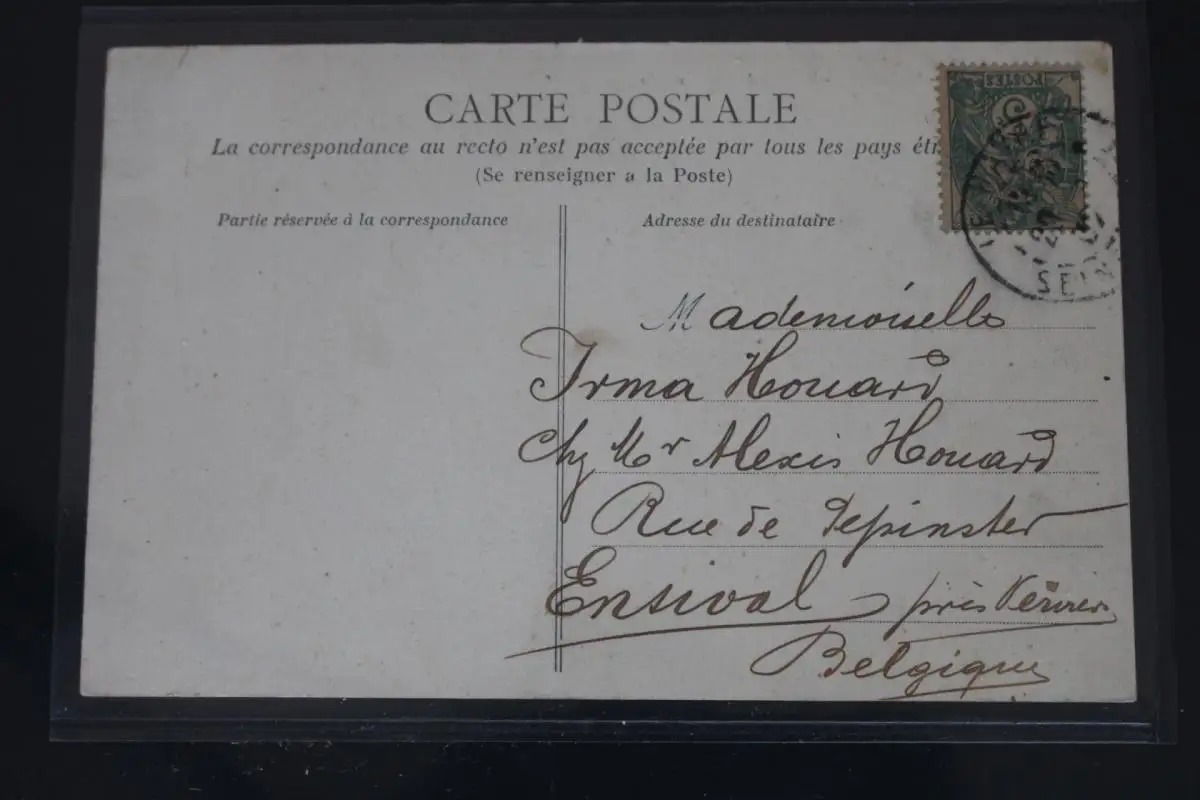 CARTE POSTALE
La correspondance au recto n'est pas acceptée par tous les pays étr
(Se renseigner a la Poste)
Partie réservée à la correspondance
Adresse du destinataire
POSTES
5
SEIN
Mademoiselle
Irma Houard
Chz Mr Alexis Houard
Rue de Pepinster
Ensival près Verviers
Belgique